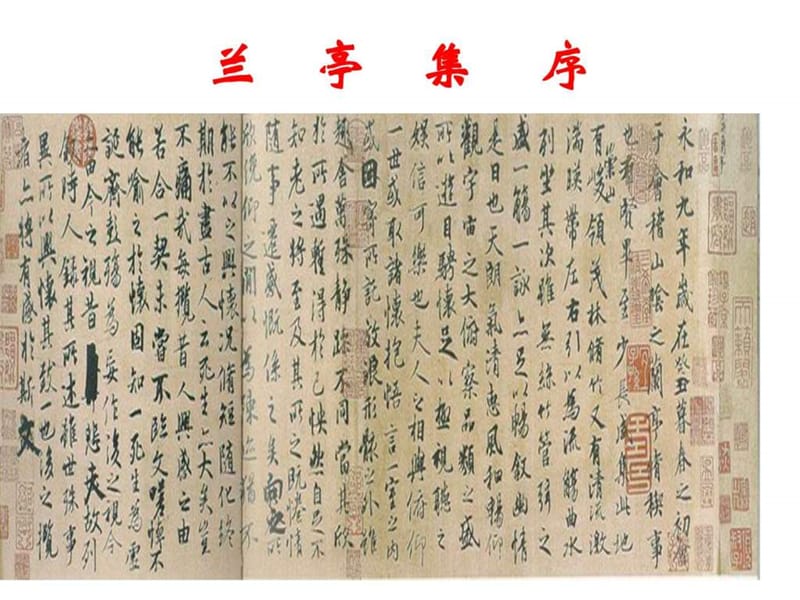 兰亭集序
永和九年歲在癸丑暮春之初會
于會稽山陰之蘭亭脩禊事
也羣賢畢至少長咸集此地
有崇山峻領茂林脩竹又有清流激
湍暎帶左右引以為流觴曲水
列坐其次雖無絲竹管弦之
盛一觴一詠亦足以暢敘幽情
是日也天朗氣清惠風和暢仰
觀宇宙之大俯察品類之盛
所以遊目騁懷足以極視聽之
娛信可樂也夫人之相與俯仰
一世或取諸懷抱悟言一室之內
或因寄所託放浪形骸之外雖
趣舍萬殊靜躁不同當其欣
於所遇蹔得於己怏然自足不
知老之將至及其所之既惓情
隨事遷感慨係之矣向之所
欣俛仰之閒以為陳迹猶不
能不以之興懷況脩短隨化終
期於盡古人云死生亦大矣豈
不痛哉每攬昔人興感之由
若合一契未嘗不臨文嗟悼不
能喻之於懷固知一死生為虛
誕齊彭殤為妄作後之視今
亦由今之視昔悲夫故列
敘時人錄其所述雖世殊事
異所以興懷其致一也後之攬
者亦將有感於斯文